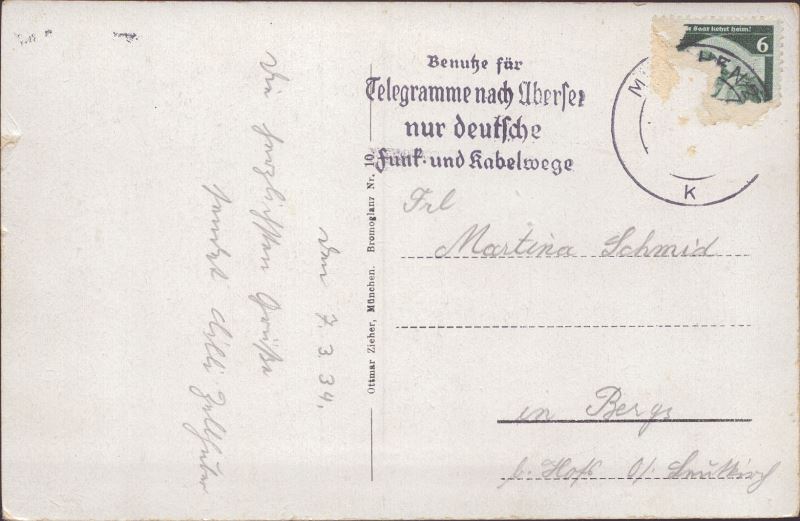 Die Saar kehrt heim!
6
Benutze für
Telegramme nach Übersee
nur deutsche
Funk- und Kabelwege
M
K
Frl
Martina Schmid
in Bergs
b. Hofs O/. Leutkirch
Ottmar Zieher, München. Bromoglanz Nr. 10.
den 7. 3. 34.
Die herzlichsten Grüße
sendet